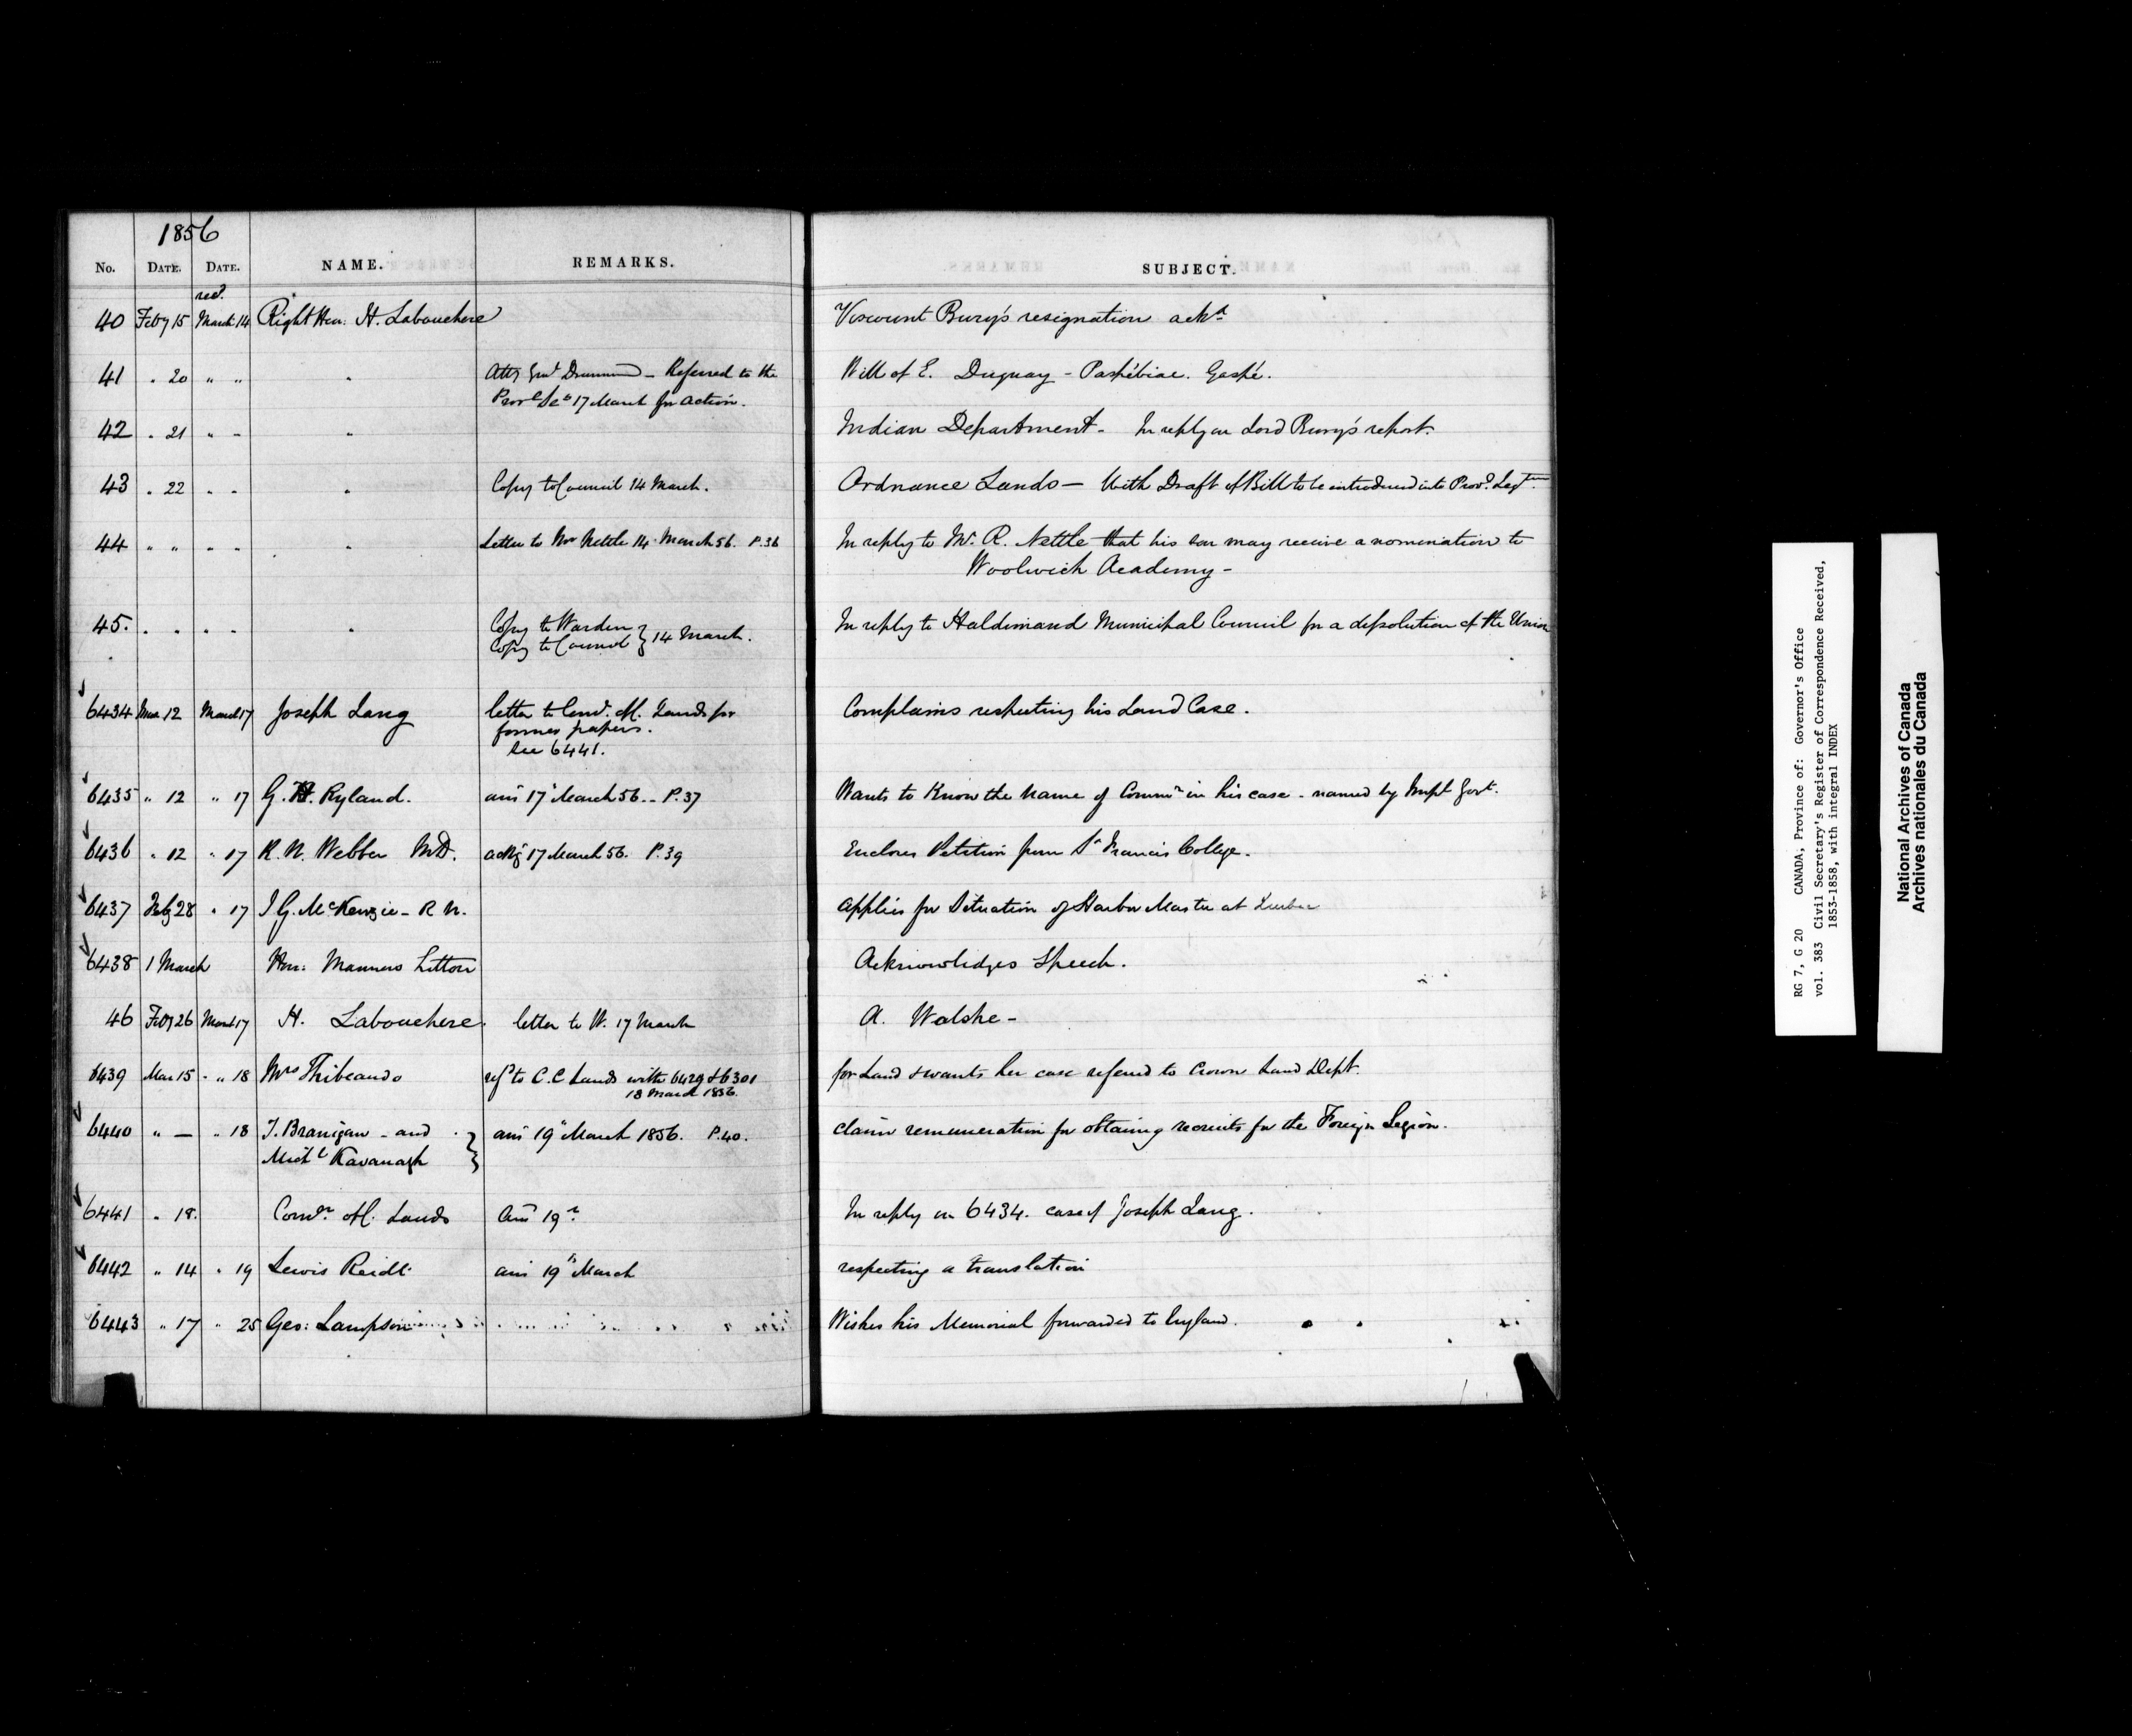 1856
No. DATE. DATE. NAME. REMARKS. SUBJECT.
recd.
40 Feby 15 March 14 Right Hon: H. Labouchere Viscount Bury's resignation ackd
41 " 20 " " " Atty Genl Drummond - Referred to the Will of E. Duguay - Paspébiac. Gaspé.
Provl Sec 17 March for action.
42 " 21 " " " Indian Department - In reply on Lord Bury's report.
43 " 22 " " " Copy to Council 14 March. Ordnance Lands - With Draft of Bill to be introduced into Provl Legre
44 " " " " " Letter to Mr Nettle 14 March 56. P.36 In reply to Mr. R. Nettle that his son may receive a nomination to
Woolwich Academy -
45. " " " " " Copy to Warden } 14 March. In reply to Haldimand Municipal Council for a dissolution of the Union
Copy to Council
6434 Mar 12 March 17 Joseph Lang letter to Comr. of Lands for Complains respecting his Land Case.
former papers.
See 6441.
6435 " 12 " 17 G. H. Ryland. ans 17 March 56 - P.37 Wants to know the name of Commr in his case - named by Impl Govt.
6436 " 12 " 17 R. N. Webber M.D. ackg 17 March 56. P.39 Encloses Petition from St Francis College.
6437 Feby 28 " 17 J G. McKenzie - R N. applies for Situation of Harbor Master at Quebec
6438 1 March Hon: Manners Sutton Acknowledges Speech.
46 Feby 26 March 17 H. Labouchere. letter to W. 17 March A. Walshe -
6439 Mar 15 " 18 Mrs Thibeaudo refd to C.C Lands with 6429 & 6301 for Land & wants her case referred to Crown Land Dept.
18 March 1856.
6440 " — " 18 T. Branigan - and } ans 19" March 1856. P.40. claim remuneration for obtaining recruits for the Foreign Legion.
Michl Kavanagh
6441 " 18. Comr of Lands Ans 19th In reply on 6434. case of Joseph Lang.
6442 " 14 " 19 Lewis Reidt ans 19th March respecting a translation
6443 " 17 " 25 Geo: Lampson Wishes his Memorial forwarded to England.
RG 7, G 20 CANADA, Province of: Governor's Office
vol. 383 Civil Secretary's Register of Correspondence Received,
1853-1858, with integral INDEX
National Archives of Canada
Archives nationales du Canada